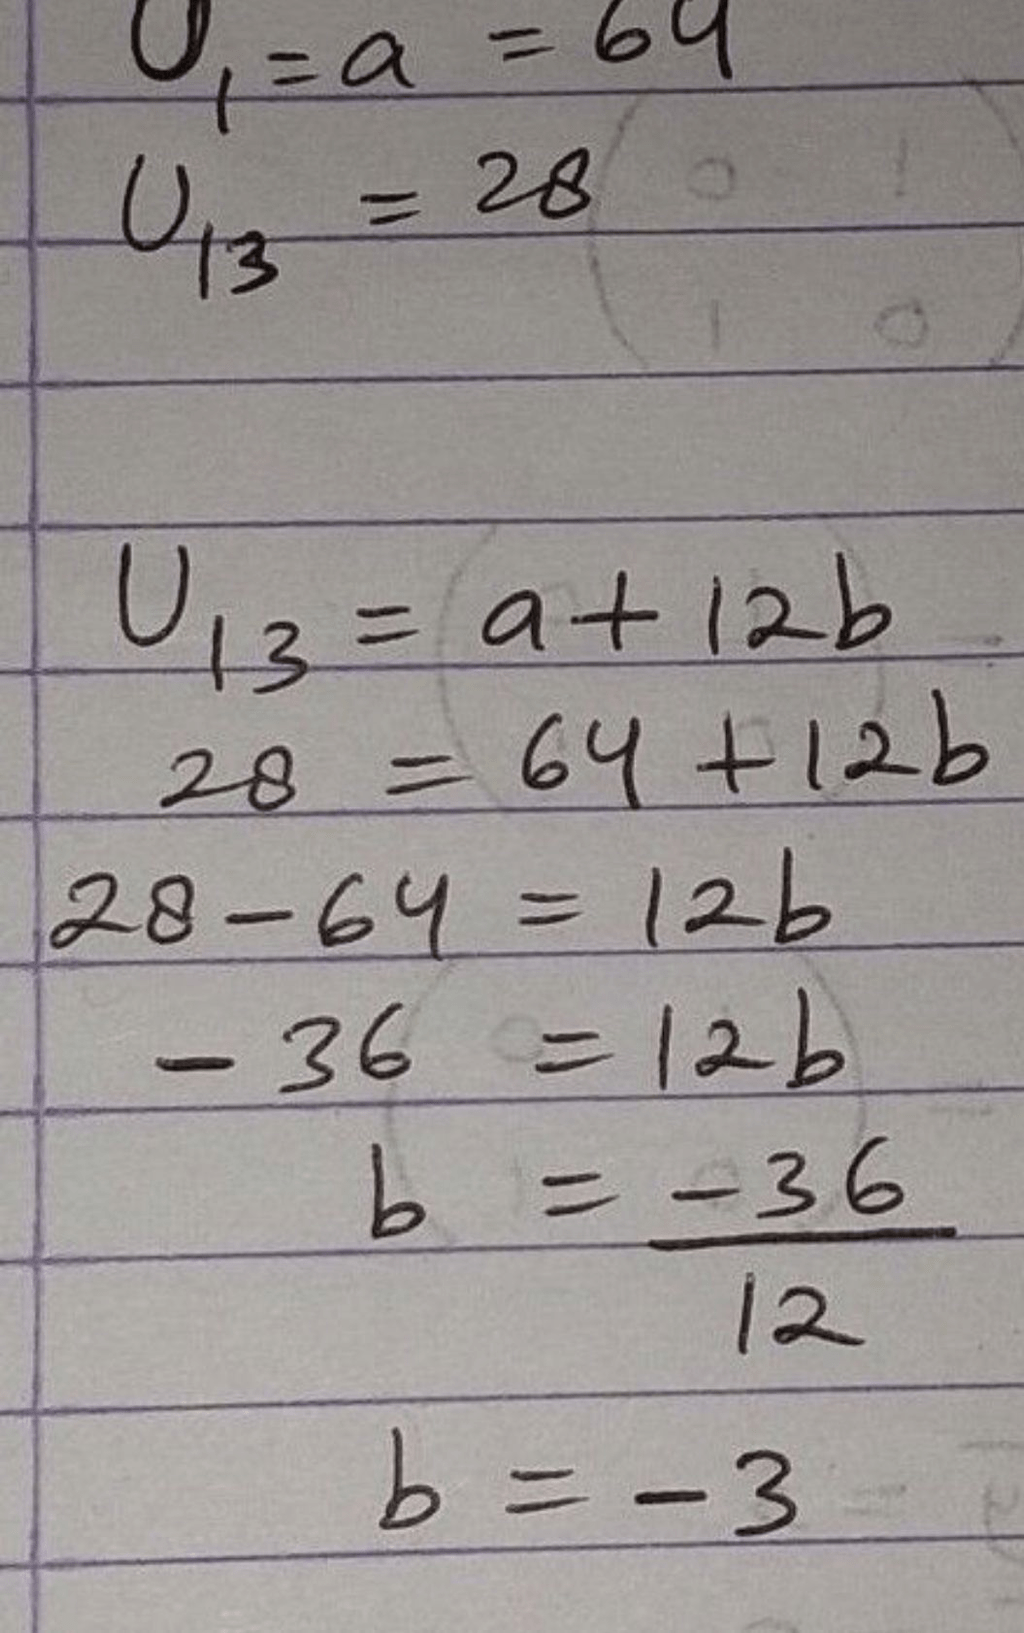 U₁ = a = 64
U₁₃ = 28
U₁₃ = a + 12b
28 = 64 + 12b
28 - 64 = 12b
- 36 = 12b
b = -36
12
b = -3